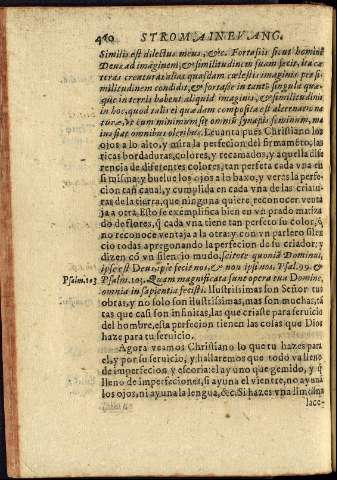 420 STROMA IN EVANG.
Similis est dilectus meus, &c. Fortassis sicut hominẽ
Deus ad imaginem, & similitudinem suam fecit, ita cæ
teras creaturas alias quasdam cœlestis imaginis per si-
militudinem condidit, & fortasse in tantũ singula quæ-
que in terris habent aliquid imaginis, & similitudinis
in hoc, quod tali et quadam composita est
ræ, vt cum minimum sit omniũ synapis seminum, ma
ius fiat omnibus oleribus. Leuanta pues Christiano los
ojos a lo alto, y mira la perfecion del firmamẽto, las
ricas bordaduras, colores, y recamados, y aquella dife
rencia de diferentes colores, tan perfeta cada vna en
si misma: y buelue los ojos a lo baxo, y veràs la perfe-
cion tan caual, y cumplida en cada vna de las criatu-
ras de la tierra, que ninguna quiere reconocer venta
ja a otra. Esto se exemplifica bien en vn prado matiza
do de flores, q̃ cada vna tiene tan perfeto su color, q̃
no reconoce ventaja a la otra: y con vn parlero silen-
cio todas apregonando la perfecion de su criador; y
dizen cõ vn silencio mudo, scitote quoniã Dominus,
ipse est Deus, ipse fecit nos, & non ipsi nos. Psal. 99. &
Psalm. 103 Psalm. 103. Quam magnificata sunt opera tua Domine,
omnia in sapientia fecisti. Ilustrissimas son Señor tus
obras, y no solo son ilustrissimas, mas son muchas, tã
tas que casi son infinitas, las que criaste para seruicio
del hombre, esta perfecion tienen las cosas que Dios
haze para tu seruicio.
Agora vamos Christiano lo que tu hazes para
el, y por su seruicio, y hallaremos que todo va lleno
de imperfecion y escoria: el ayuno que gemido, y q̃
lleno de imperfeciones, si ayuna el vientre, no ayunã
los ojos, ni ayuna la lengua, &c. Si hazes vna limosna
lace-